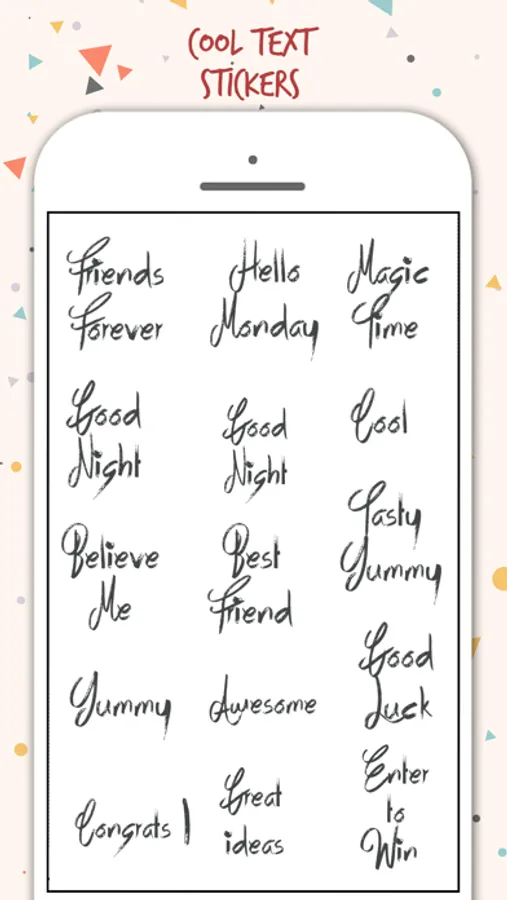 COOL TEXT
STICKERS
Friends
Forever
Hello
Monday
Magic
Time
Good
Night
Good
Night
Cool
Tasty
Yummy
Believe
Me
Best
Friend
Good
Luck
Yummy
Awesome
Enter
to
Win
Congrats
Great
ideas